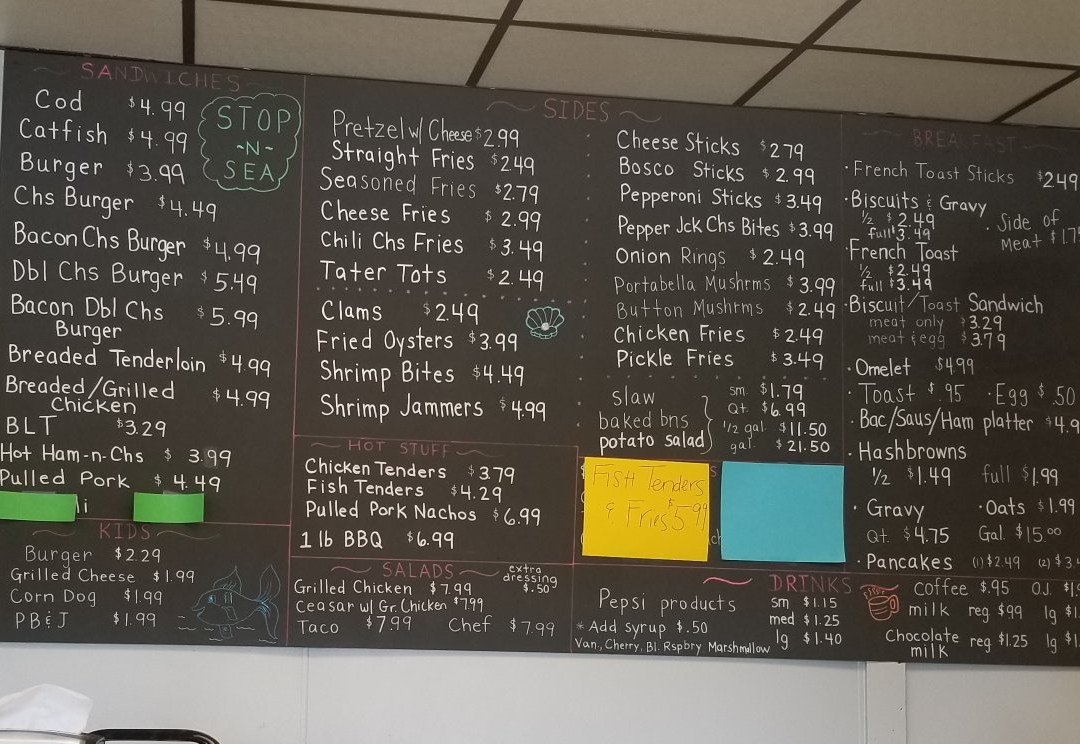 SANDWICHES
Cod $4.99
Catfish $4.99
Burger $3.99
Chs Burger $4.49
Bacon Chs Burger $4.99
Dbl Chs Burger $5.49
Bacon Dbl Chs $5.99
Burger
Breaded Tenderloin $4.99
Breaded/Grilled $4.99
Chicken
BLT $3.29
Hot Ham-n-Chs $3.99
Pulled Pork $4.49
STOP
-N-
SEA
KIDS
Burger $2.29
Grilled Cheese $1.99
Corn Dog $1.99
PB&J $1.99
SIDES
Pretzel w/ Cheese $2.99
Straight Fries $2.49
Seasoned Fries $2.79
Cheese Fries $2.99
Chili Chs Fries $3.49
Tater Tots $2.49
Clams $2.49
Fried Oysters $3.99
Shrimp Bites $4.49
Shrimp Jammers $4.99
Cheese Sticks $2.79
Bosco Sticks $2.99
Pepperoni Sticks $3.49
Pepper Jck Chs Bites $3.99
Onion Rings $2.49
Portabella Mushrms $3.99
Button Mushrms $2.49
Chicken Fries $2.49
Pickle Fries $3.49
slaw
baked bns
potato salad
sm. $1.79
Qt. $6.99
1/2 gal. $11.50
gal. $21.50
HOT STUFF
Chicken Tenders $3.79
Fish Tenders $4.29
Pulled Pork Nachos $6.99
1 lb BBQ $6.99
Fish Tenders
& Fries $5.99
SALADS
extra
dressing
$.50
Grilled Chicken $7.99
Ceasar w/ Gr. Chicken $7.99
Taco $7.99 Chef $7.99
BREAKFAST
· French Toast Sticks $2.49
· Biscuits & Gravy
1/2 $2.49
full $3.49
· Side of
Meat
· French Toast
1/2 $2.49
full $3.49
· Biscuit/Toast Sandwich
meat only $3.29
meat & egg $3.79
· Omelet $4.99
· Toast $.95 · Egg $.50
· Bac/Saus/Ham platter
· Hashbrowns
1/2 $1.49 full $1.99
· Gravy · Oats $1.99
Qt. $4.75 Gal. $15.00
· Pancakes (1) $2.49 (2)
DRINKS
Pepsi products
sm $1.15
med $1.25
lg $1.40
* Add syrup $.50
Van, Cherry, Bl. Rspbry Marshmallow
coffee $.95 O.J.
milk reg $.99 lg
Chocolate reg $1.25 lg
milk